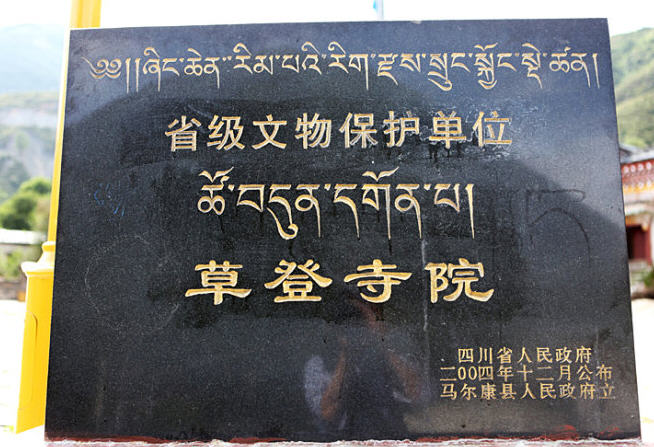 ༄༅།།ཞིང་ཆེན་རིམ་པའི་རིག་རྫས་སྲུང་སྐྱོང་སྡེ་ཚན།
省级文物保护单位
ཚོ་བདུན་དགོན་པ།
草登寺院
四川省人民政府
二00四年十二月公布
马尔康县人民政府立